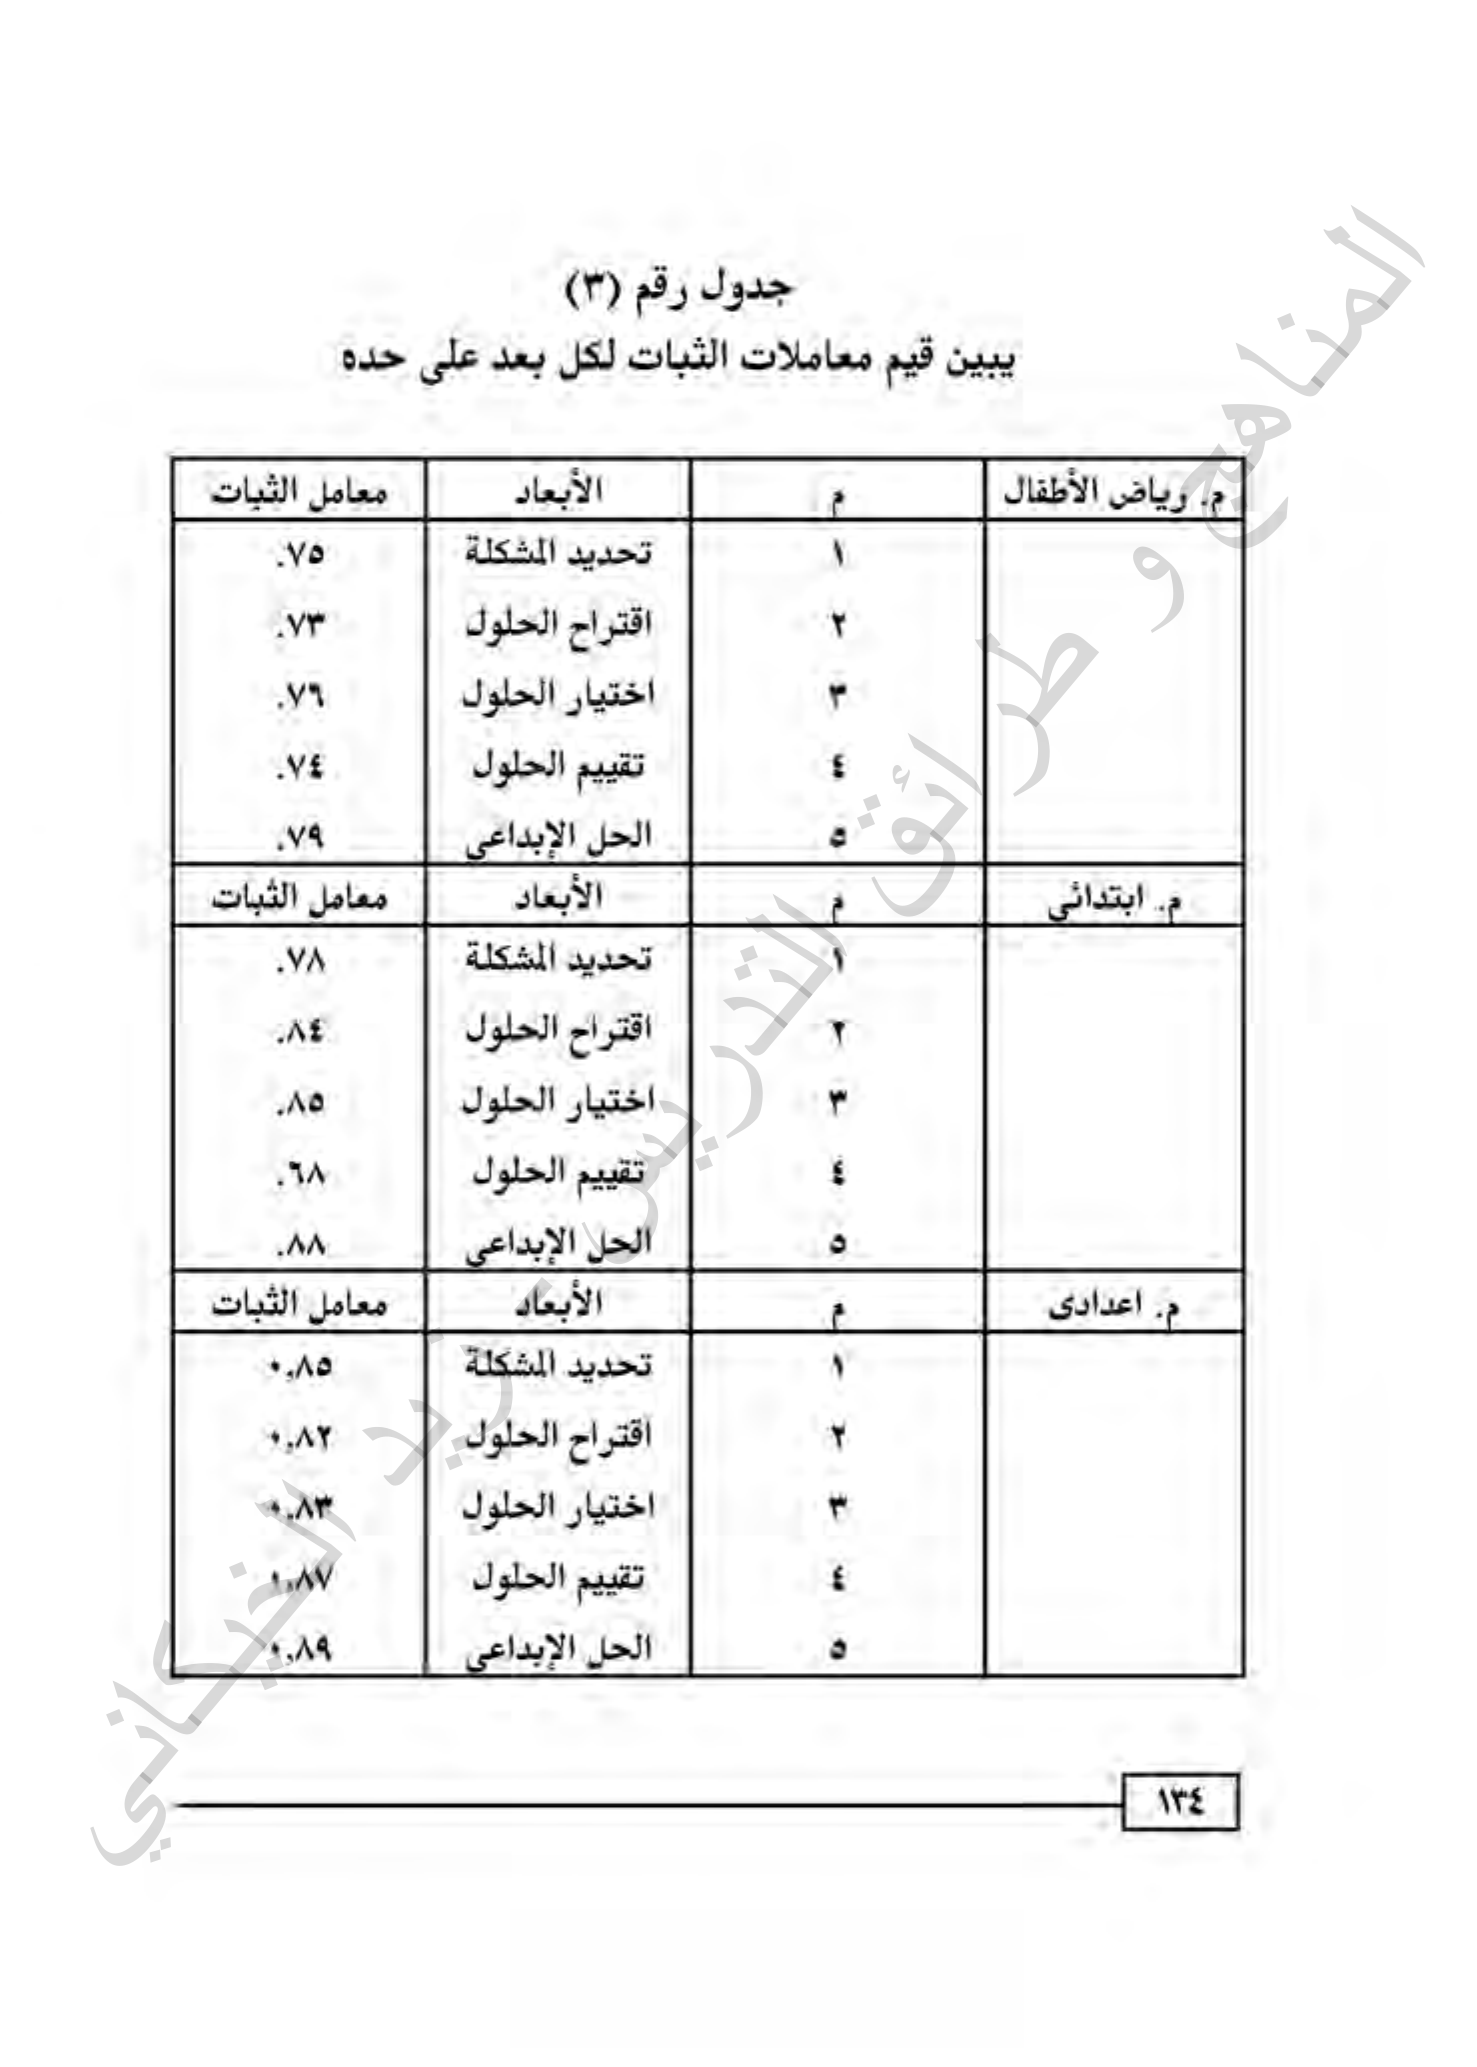 جدول رقم (٣)
يبين قيم معاملات الثبات لكل بعد على حده
م. رياض الأطفال م الأبعاد معامل الثبات
١ تحديد المشكلة ٧٥.
٢ اقتراح الحلول ٧٣.
٣ اختيار الحلول ٧٦.
٤ تقييم الحلول ٧٤.
٥ الحل الإبداعى ٧٩.
م. ابتدائي م الأبعاد معامل الثبات
١ تحديد المشكلة ٧٨.
٢ اقتراح الحلول ٨٤.
٣ اختيار الحلول ٨٥.
٤ تقييم الحلول ٦٨.
٥ الحل الإبداعى ٨٨.
م. اعدادى م الأبعاد معامل الثبات
١ تحديد المشكلة ٠,٨٥
٢ اقتراح الحلول ٠,٨٢
٣ اختيار الحلول ٠,٨٣
٤ تقييم الحلول ٠,٨٧
٥ الحل الإبداعى ٠,٨٩
١٣٤
المناهج و طرائق التدريس - ريد الخيكاني